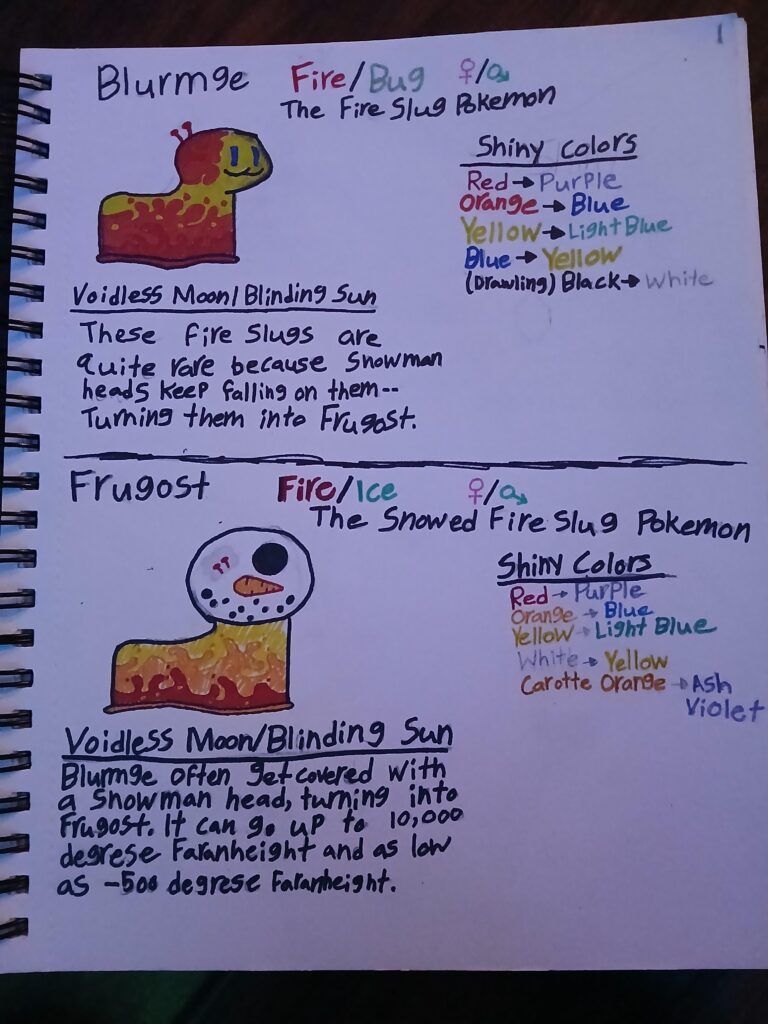 1
Blurmge Fire/Bug ♀/♂
The Fire Slug Pokemon
Shiny colors
Red→Purple
Orange→Blue
Yellow→Light Blue
Blue→Yellow
(Drawling) Black→White
Voidless Moon/Blinding Sun
These fire slugs are
quite rare because snowman
heads keep falling on them--
Turning them into Frugost.
Frugost Fire/Ice ♀/♂
The Snowed Fire Slug Pokemon
Shiny Colors
Red→Purple
Orange→Blue
Yellow→Light Blue
White→Yellow
Carotte Orange→Ash
Violet
Voidless Moon/Blinding Sun
Blurmge often get covered with
a snowman head, turning into
Frugost. It can go up to 10,000
degrese Faranheight and as low
as -500 degrese Faranheight.